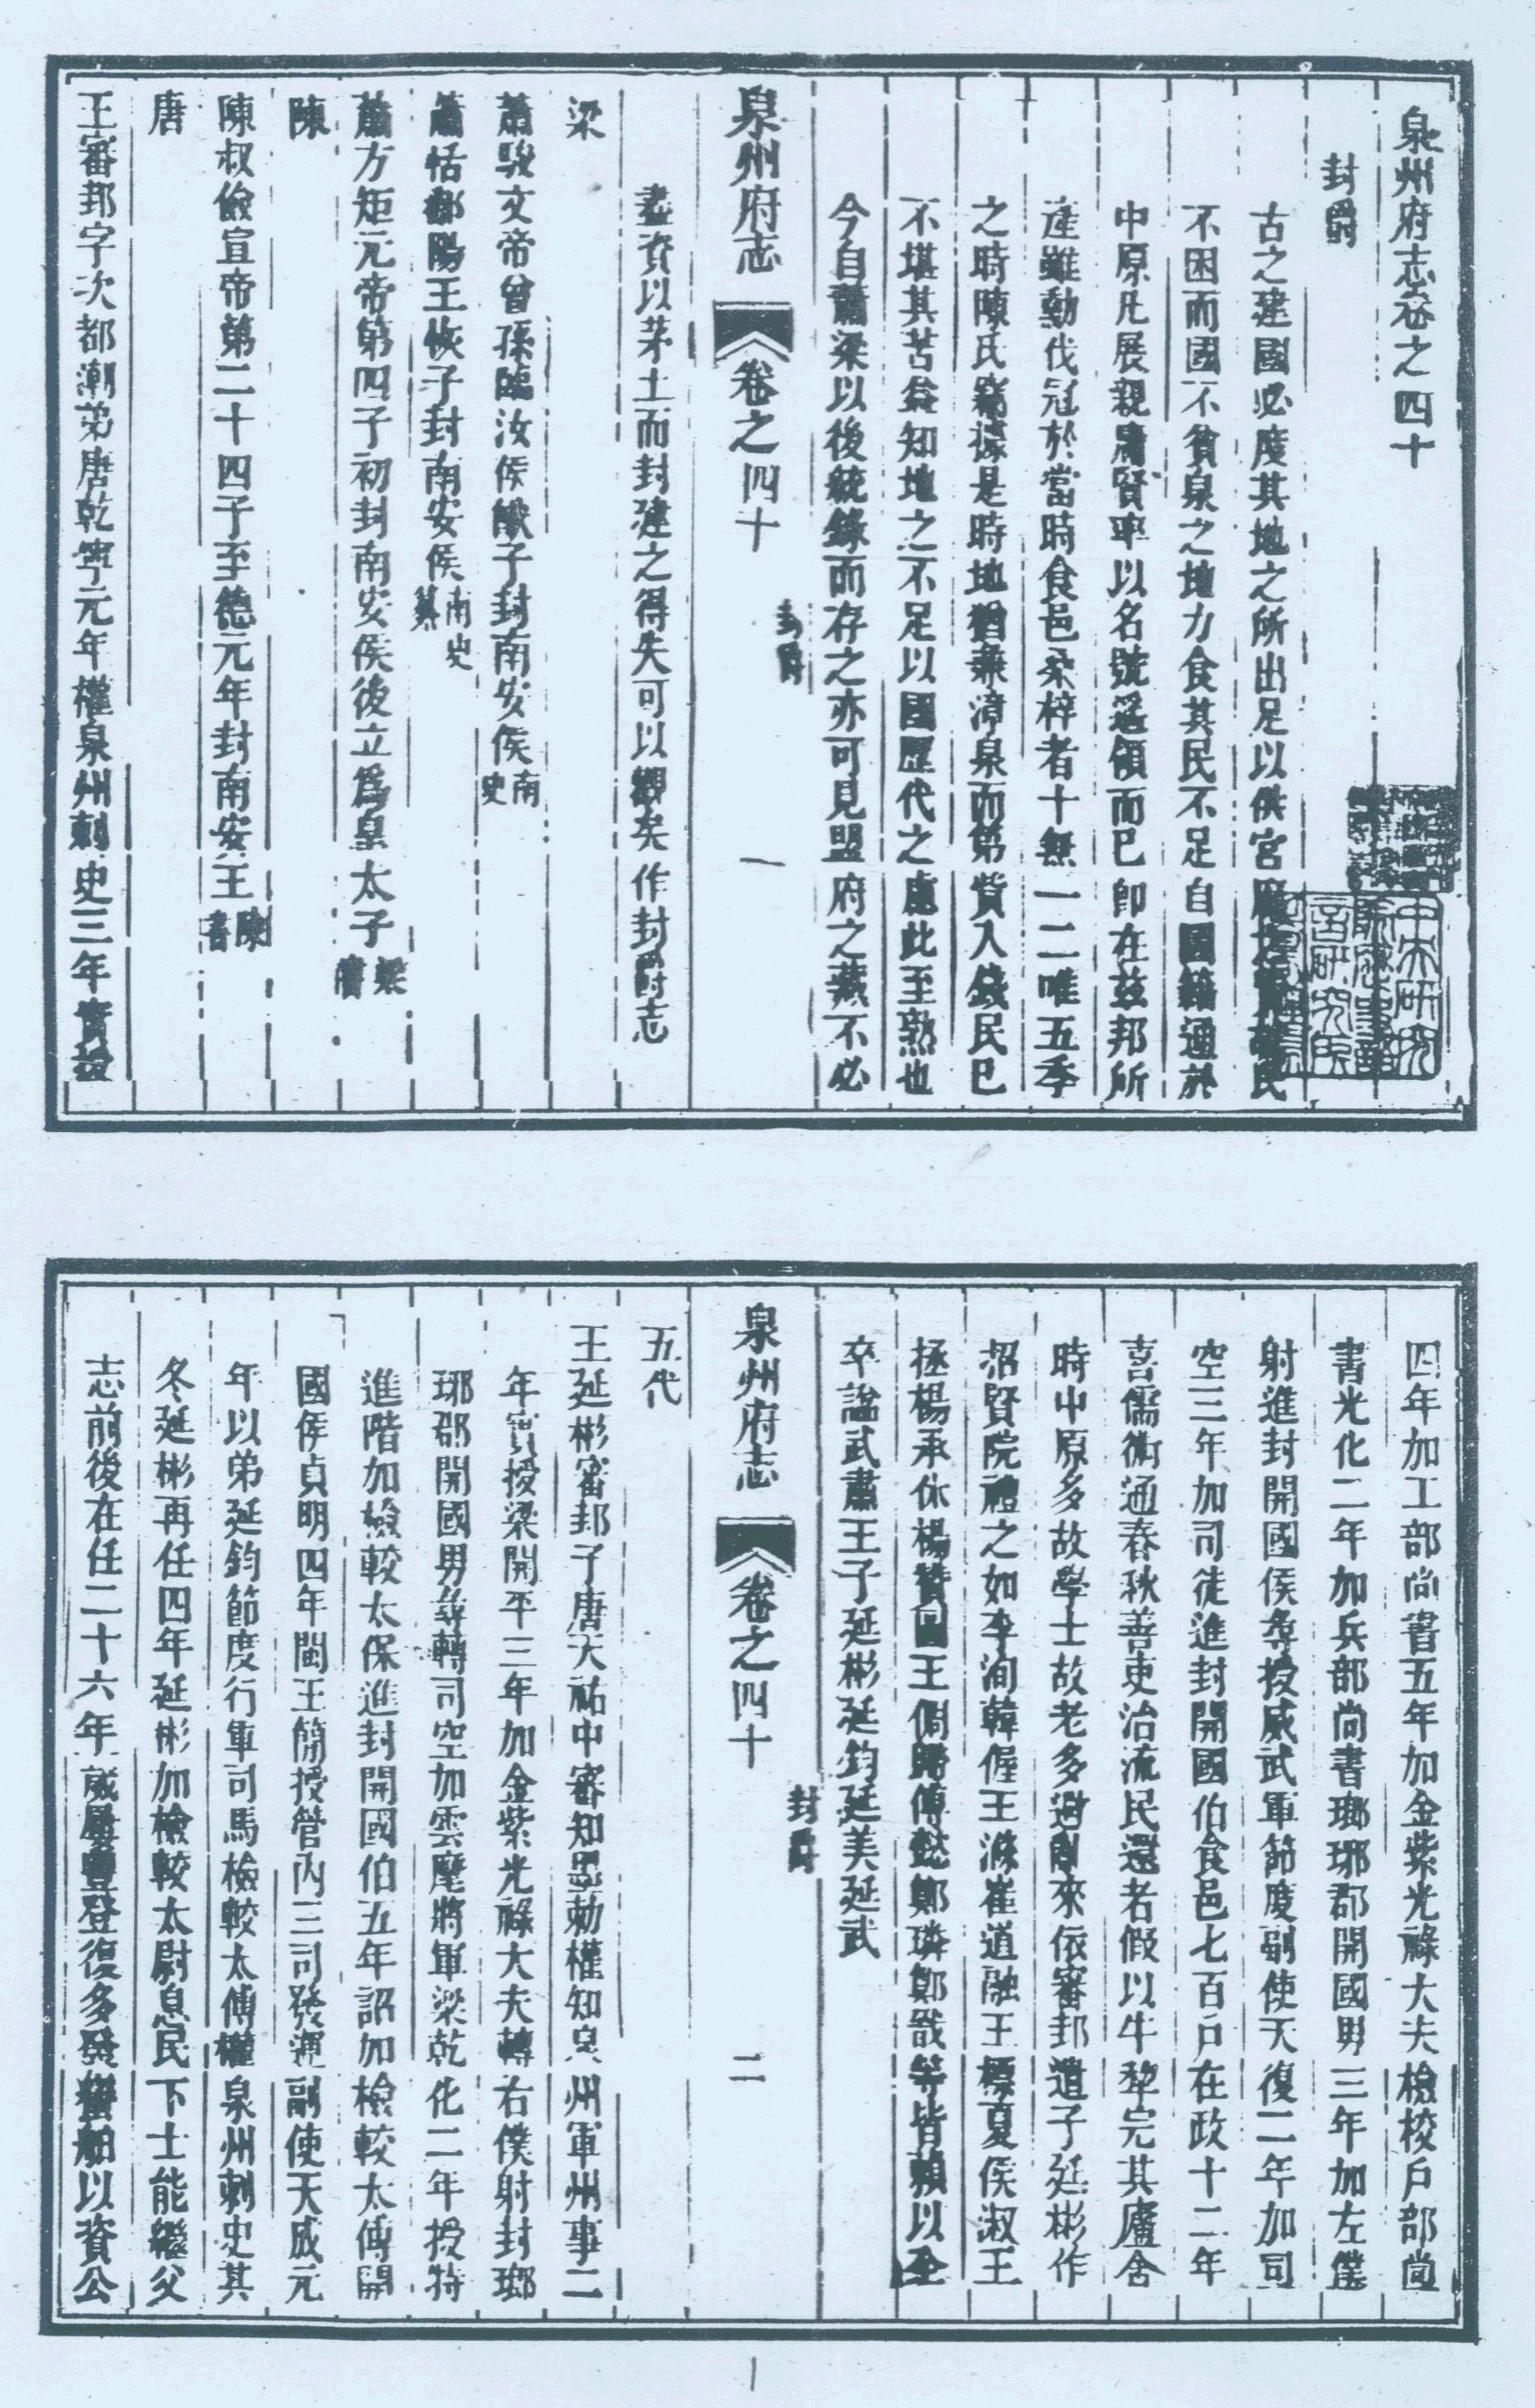 泉州府志卷之四十
封爵
古之建國必度其地之所出足以供官
不困而國不貧泉之地力食其民不足自國籍通於
中原凡展親庸賢率以名號遙領而已卽在茲邦所
產雖勳伐冠於當時食邑桑梓者十無一二唯五季
之時陳氏竊據是時地猶兼漳泉而第貲入錢民已
不堪其苦益知地之不足以國歷代之慮此至熟也
今自蕭梁以後統錄而存之亦可見盟府之藏不必
泉州府志
卷之四十
封爵
一
盡資以茅土而封建之得失可以觀矣作封爵志
梁
蕭駿文帝曾孫臨汝侯猷子封南安侯南史
蕭恬鄱陽王恢子封南安侯南史
蕭方矩元帝第四子初封南安侯後立爲皇太子梁書
陳
陳叔儉宣帝第二十四子至德元年封南安王陳書
唐
王審邽字次都潮弟唐乾寧元年權泉州刺史三年實授
四年加工部尚書五年加金紫光祿大夫檢校戶部尚
書光化二年加兵部尚書瑯琊郡開國男三年加左僕
射進封開國侯尋授威武軍節度副使天復二年加司
空三年加司徒進封開國伯食邑七百戶在政十二年
喜儒術通春秋善吏治流民還者假以牛犂完其廬舍
時中原多故學士故老多避亂來依審邽遣子延彬作
招賢院禮之如李洵韓偓王滌崔道融王標夏侯淑王
拯楊承休楊贊圖王倜歸傳懿鄭璘鄭戩等皆賴以全
卒謚武肅王子延彬延鈞延美延武
泉州府志
卷之四十
封爵
二
五代
王延彬審邽子唐天祐中審知墨勅權知泉州軍州事二
年實授梁開平三年加金紫光祿大夫轉右僕射封瑯
琊郡開國男尋轉司空加雲麾將軍梁乾化二年授特
進階加檢較太保進封開國伯五年詔加檢較太傅開
國侯貞明四年閩王簡授管內三司發運副使天成元
年以弟延鈞節度行軍司馬檢較太傅權泉州刺史其
冬延彬再任四年延彬加檢較太尉息民下士能繼父
志前後在任二十六年歲屢豐登復多發蠻舶以資公
1